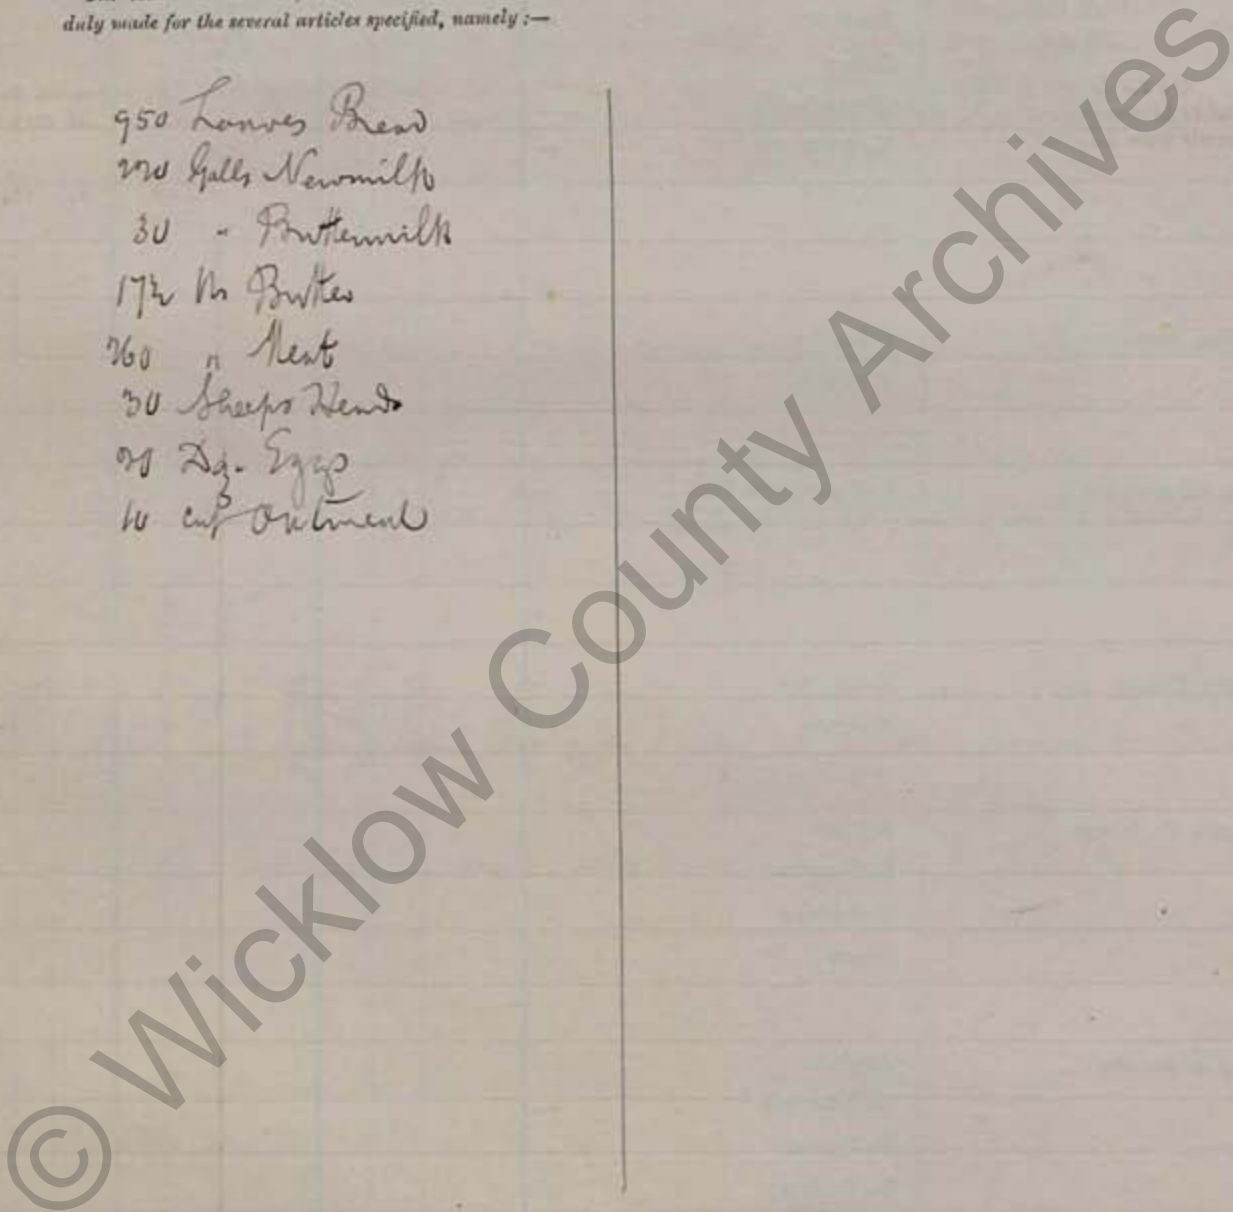 duly made for the several articles specified, namely :—
950 Loaves Bread
220 Galls Newmilk
30 " Buttermilk
17½ lbs Butter
260 " Meat
30 Sheeps Heads
20 Dz. Eggs
10 cwt Oatmeal
© Wicklow County Archives